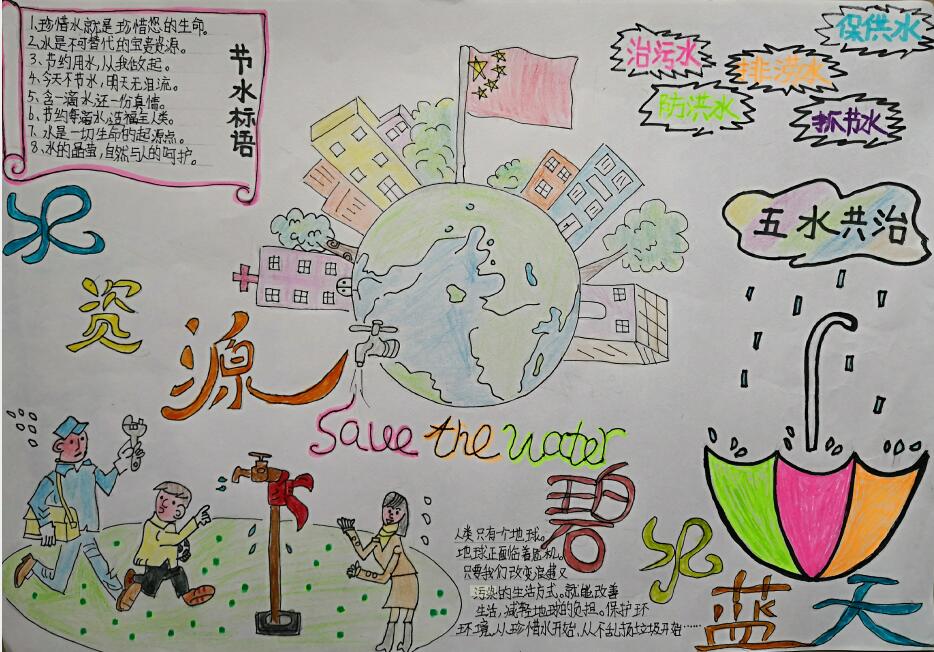 1、珍惜水就是珍惜您的生命。
2.水是不可替代的宝贵资源。
3、节约用水,从我做起。
4、今天不节水,明天无泪流。
5、含一滴水,还一份真情。
6、节约每滴水,造福全人类。
7、水是一切生命的起源点。
8、水的晶莹,自然与人的呵护。
节水标语
治污水
保供水
排涝水
防洪水
抓节水
五水共治
水
资
源
Save the water
碧
水
蓝
天
人类只有一个地球。
地球正面临着危机。
只要我们改变浪费又
污染的生活方式。就能改善
生活,减轻地球的负担。保护环
环境,从珍惜水开始,从不乱扔垃圾开始……